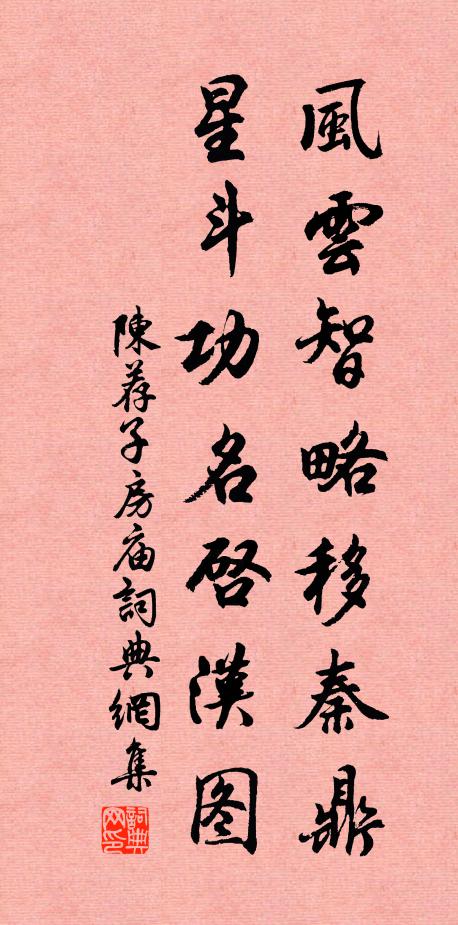 風雲智略移秦鼎
星斗功名啓漢图
陳荐子房庙詞典網集
詞典网印